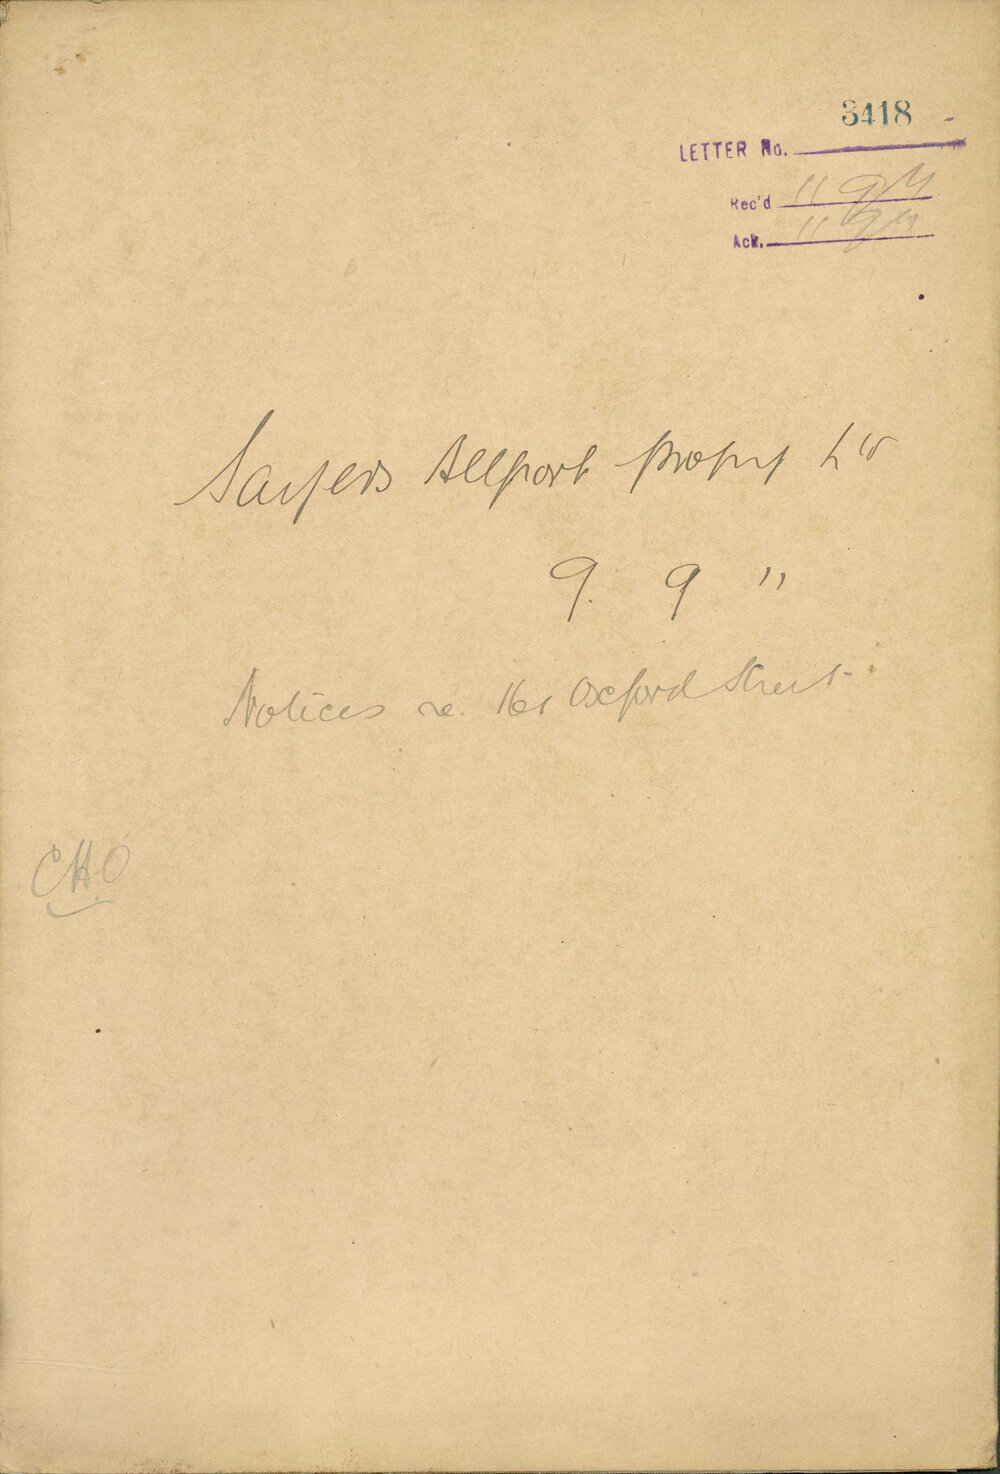 3418
LETTER No.
Rec'd 11 9
Ack. 11 9
Sayers Allport Propy Ld
9. 9 "
Notices re. 161 Oxford Street
CHO